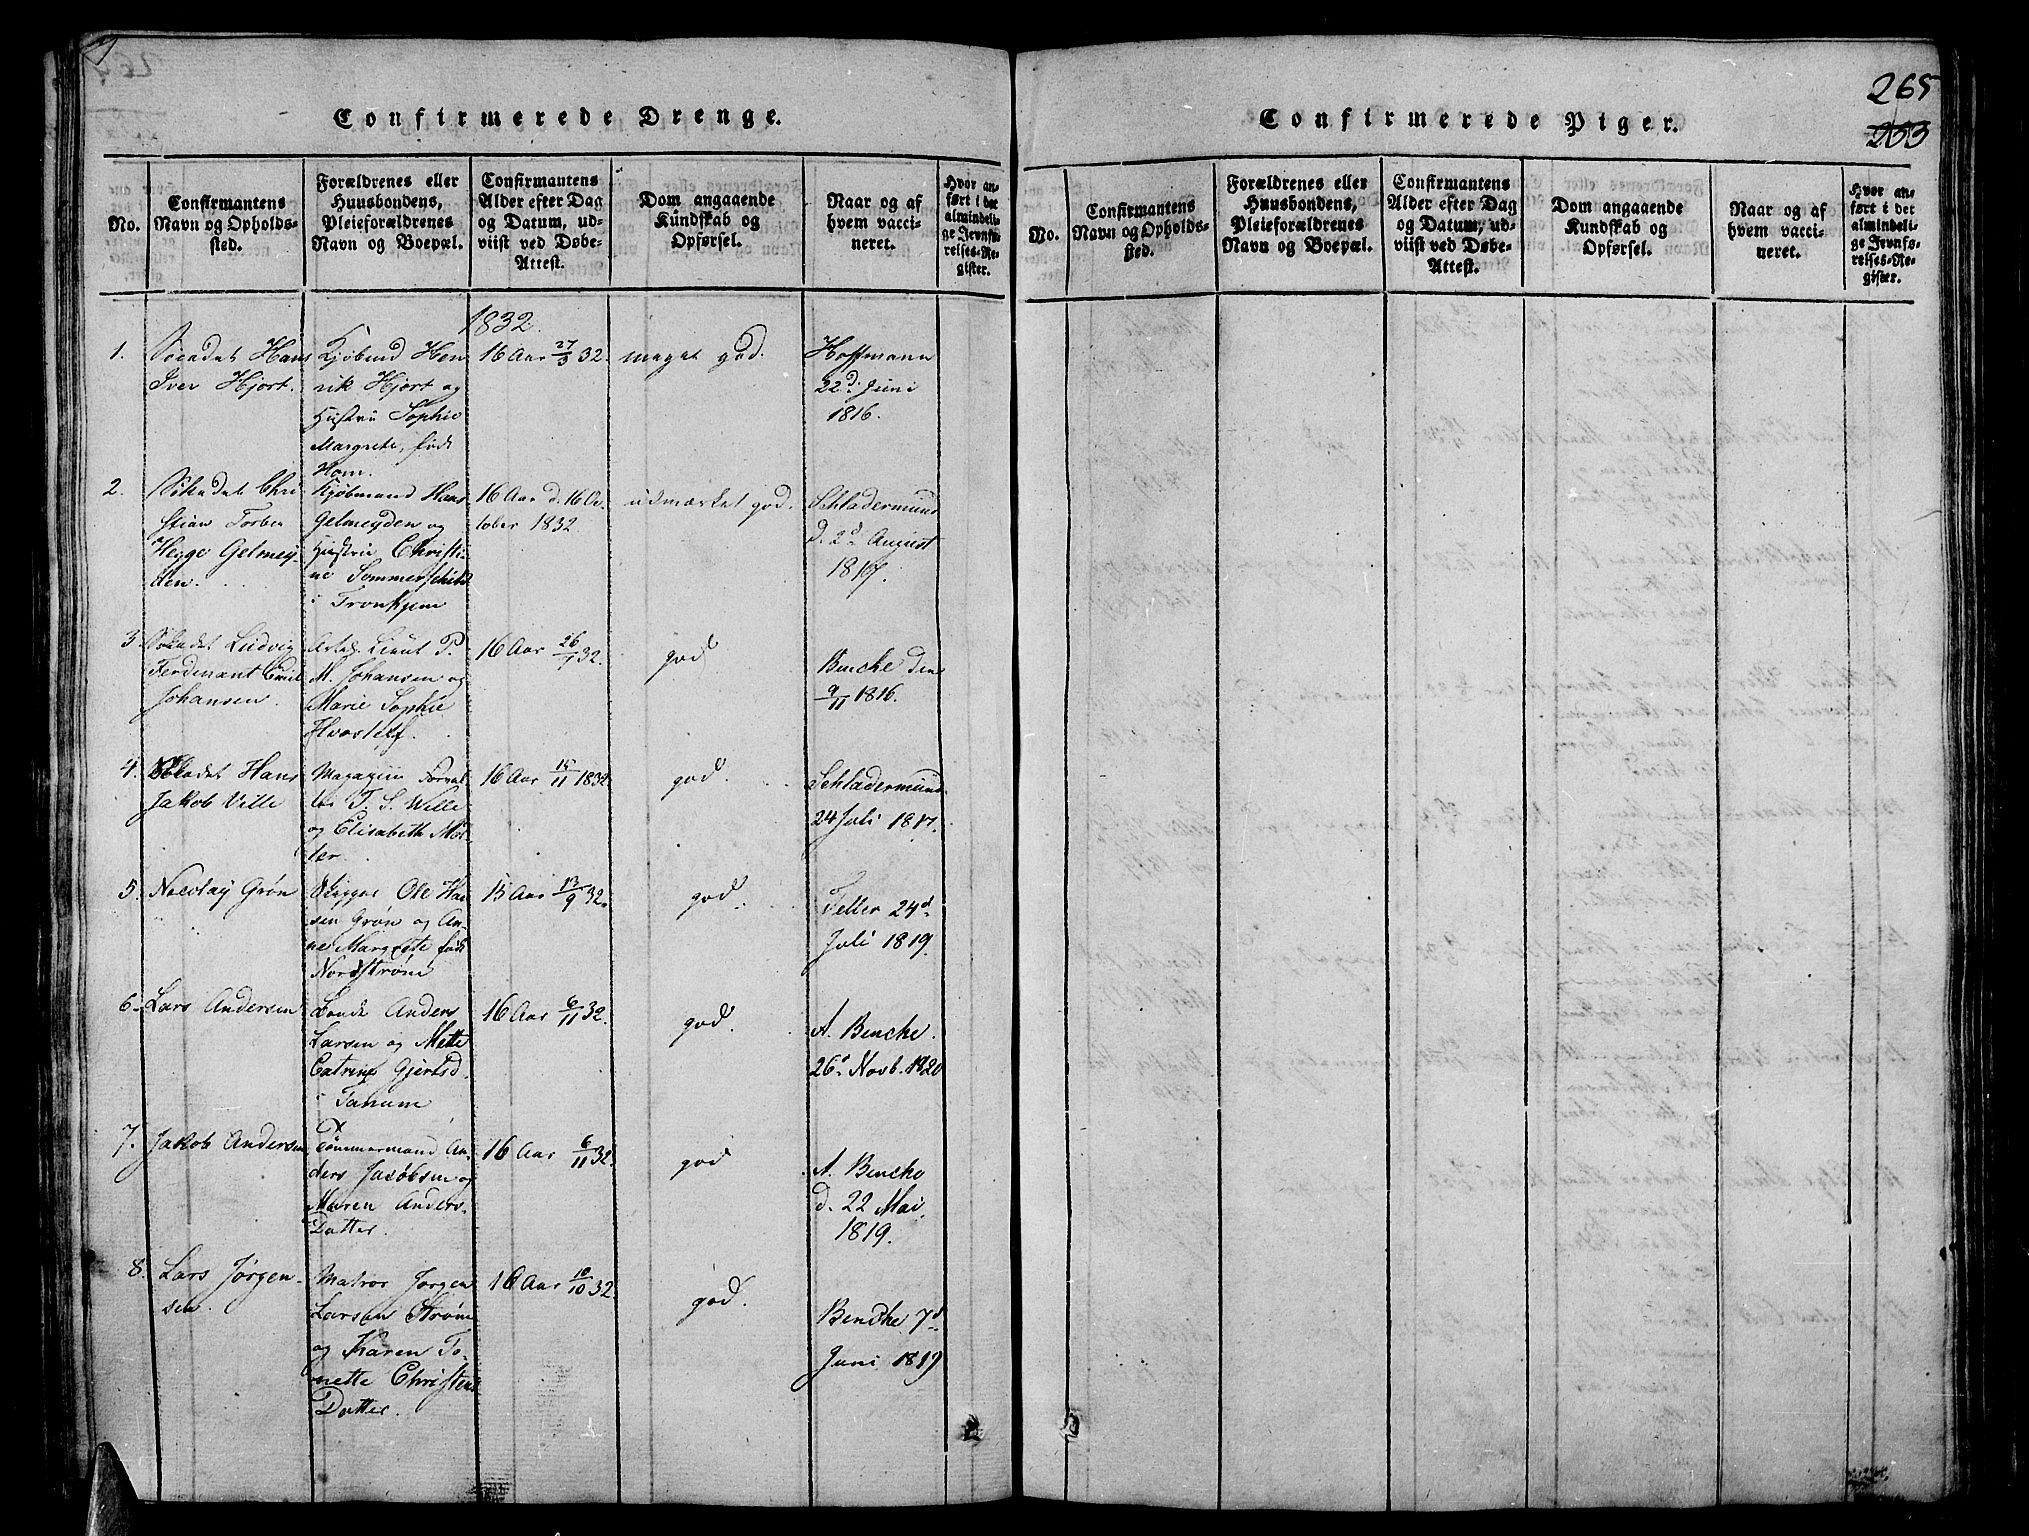 265
253
Confirmerede Drenge.
No.
Confirmantens
Navn og Opholds-
sted.
Forældrenes eller
Huusbondens,
Pleieforældrenes
Navn og Boepæl.
Confirmantens
Alder efter Dag
og Datum, ud-
viist ved Døbe-
Attest.
Dom angaaende
Kundskab og
Opførsel.
Naar og af
hvem vacci-
neret.
Hvor an-
ført i det
almindeli-
ge Jevnfø-
relses-Re-
gister.
1832.
1.
Søcadet Hans
Iver Hjort.
Kjøbmd Hen-
rik Hjort og
Hustru Sophie
Margrete, født
Horn.
16 Aar 27/3 32.
meget god.
Hoffmann
22d Juni
1816.
2.
Søkadet Chri
stian Torber
Hegge Gelmey-
den.
Kjøbmand Hans
Gelmeyden og
Hustrue Christi-
ne Sommerschild
i Tronhjem
16 Aar d. 16 Oc-
tober 1832
udmærket god.
Schladermund
d. 2d August
1817.
3.
Søkadet Ludvig
Ferdenant Emil
Johansen.
Lieut P.
M. Johansen og
Marie Sophie
16 Aar 26/7 32.
god
Benche den
9/11 1816.
4.
Søkadet Hans
Jakob Ville
Magazin Forval-
ter T. S. Wille
og Elisabeth Møl-
ler.
16 Aar 15/11 1832
god.
Schladermund
24 Juli 1817.
5.
Nicolay Grøn
Skipper Ole Han
sen Grøn og An-
ne Margrete født
Nordstrøm
15 Aar 13/9 32.
god.
Feller 24d
Juli 1819.
6.
Lars Andersen
Bonde Anders
Larsen og Mette
Catrine Gjertsd.
i Tanum
16 Aar 6/11 32.
god.
A. Benche.
26d Novb. 1820
7.
Jakob Andersen
Tømmermand An-
ders Jacobsen og
Maren Anders-
Datter.
16 Aar 6/11 32.
god
A. Benche
d. 22 Mai
1819.
8.
Lars Jørgen-
sen.
Matros Jørgen
Larsen Strøm
og Karen To-
nette Christens
Datter.
16 Aar 10/10 32.
god.
Benche 7d
Juni 1819
Confirmerede Piger.
No.
Confirmantens
Navn og Opholds-
sted.
Forældrenes eller
Huusbondens,
Pleieforældrenes
Navn og Boepæl.
Confirmantens
Alder efter Dag
og Datum, ud-
viist ved Døbe-
Attest.
Dom angaaende
Kundskab og
Opførsel.
Naar og af
hvem vacci-
neret.
Hvor an-
ført i det
almindeli-
ge Jevnfø-
relses-Re-
gister.